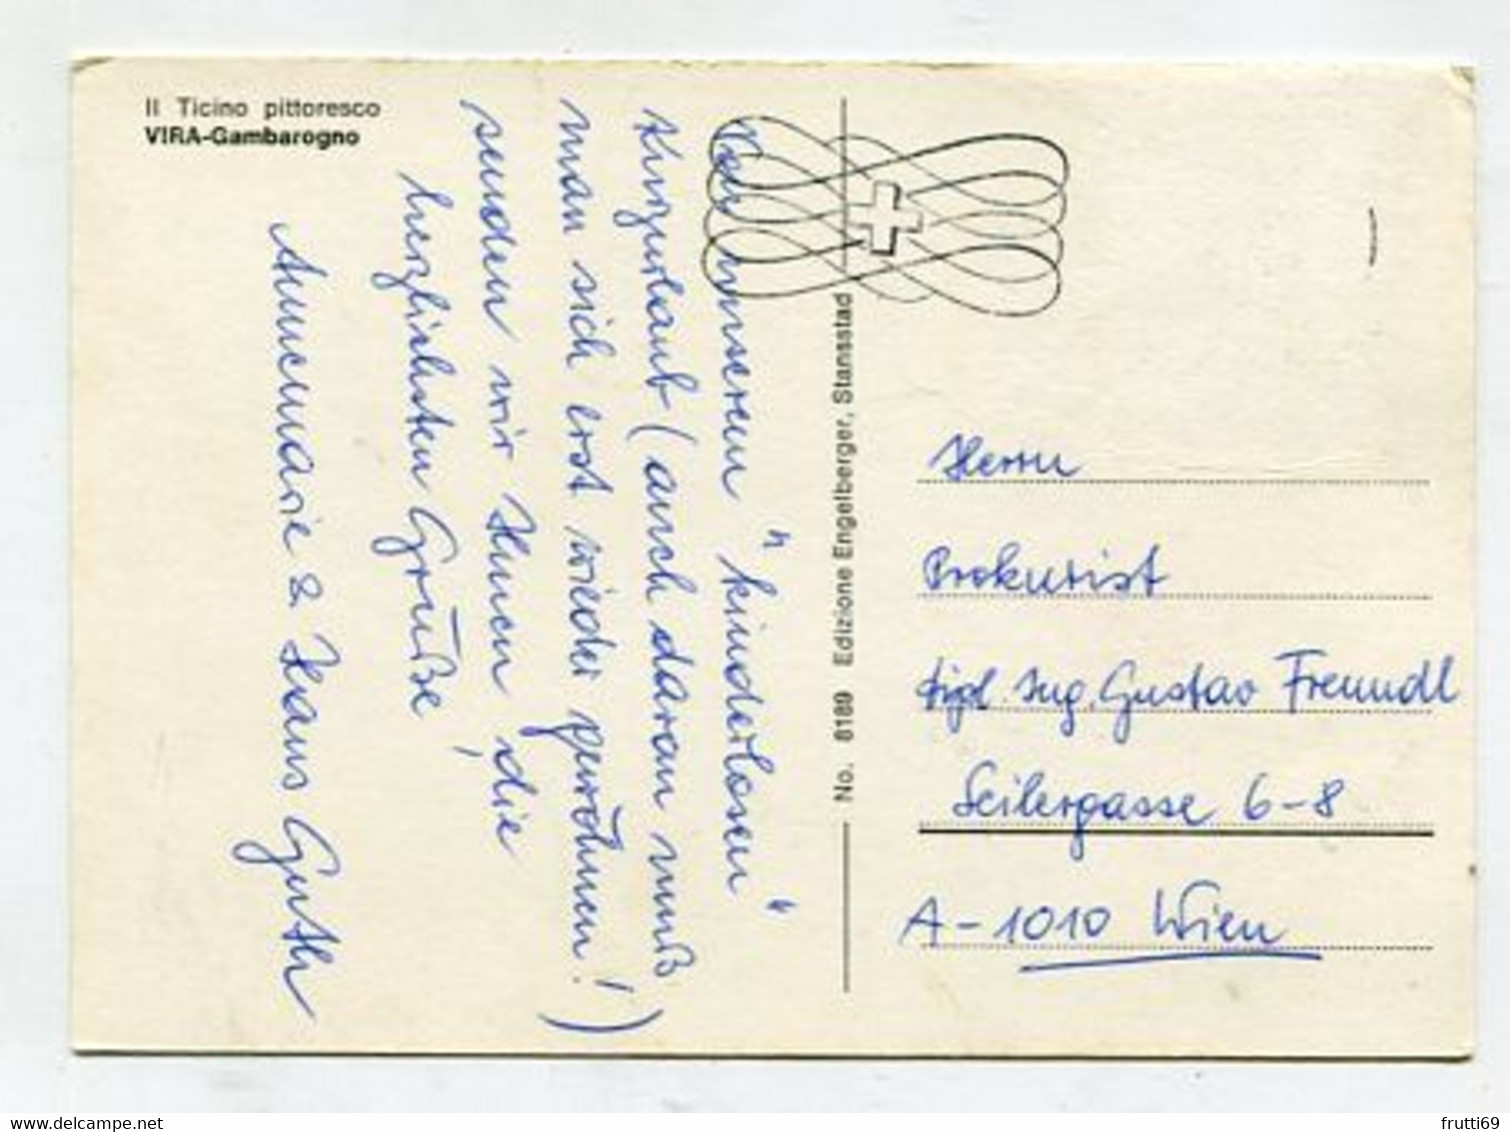 Il Ticino pittoresco
VIRA-Gambarogno
Von unserem "kinderlosen"
Kurzurlaub (auch daran muß
man sich erst wieder gewöhnen!)
senden wir Ihnen die
herzlichsten Grüße,
Annemarie & Hans Guth
No. 8189 Edizione Engelberger, Stansstad
Herrn
Prokurist
dipl. Ing. Gustav Freundl
Seilergasse 6-8
A-1010 Wien
www.delcampe.net
frutti69